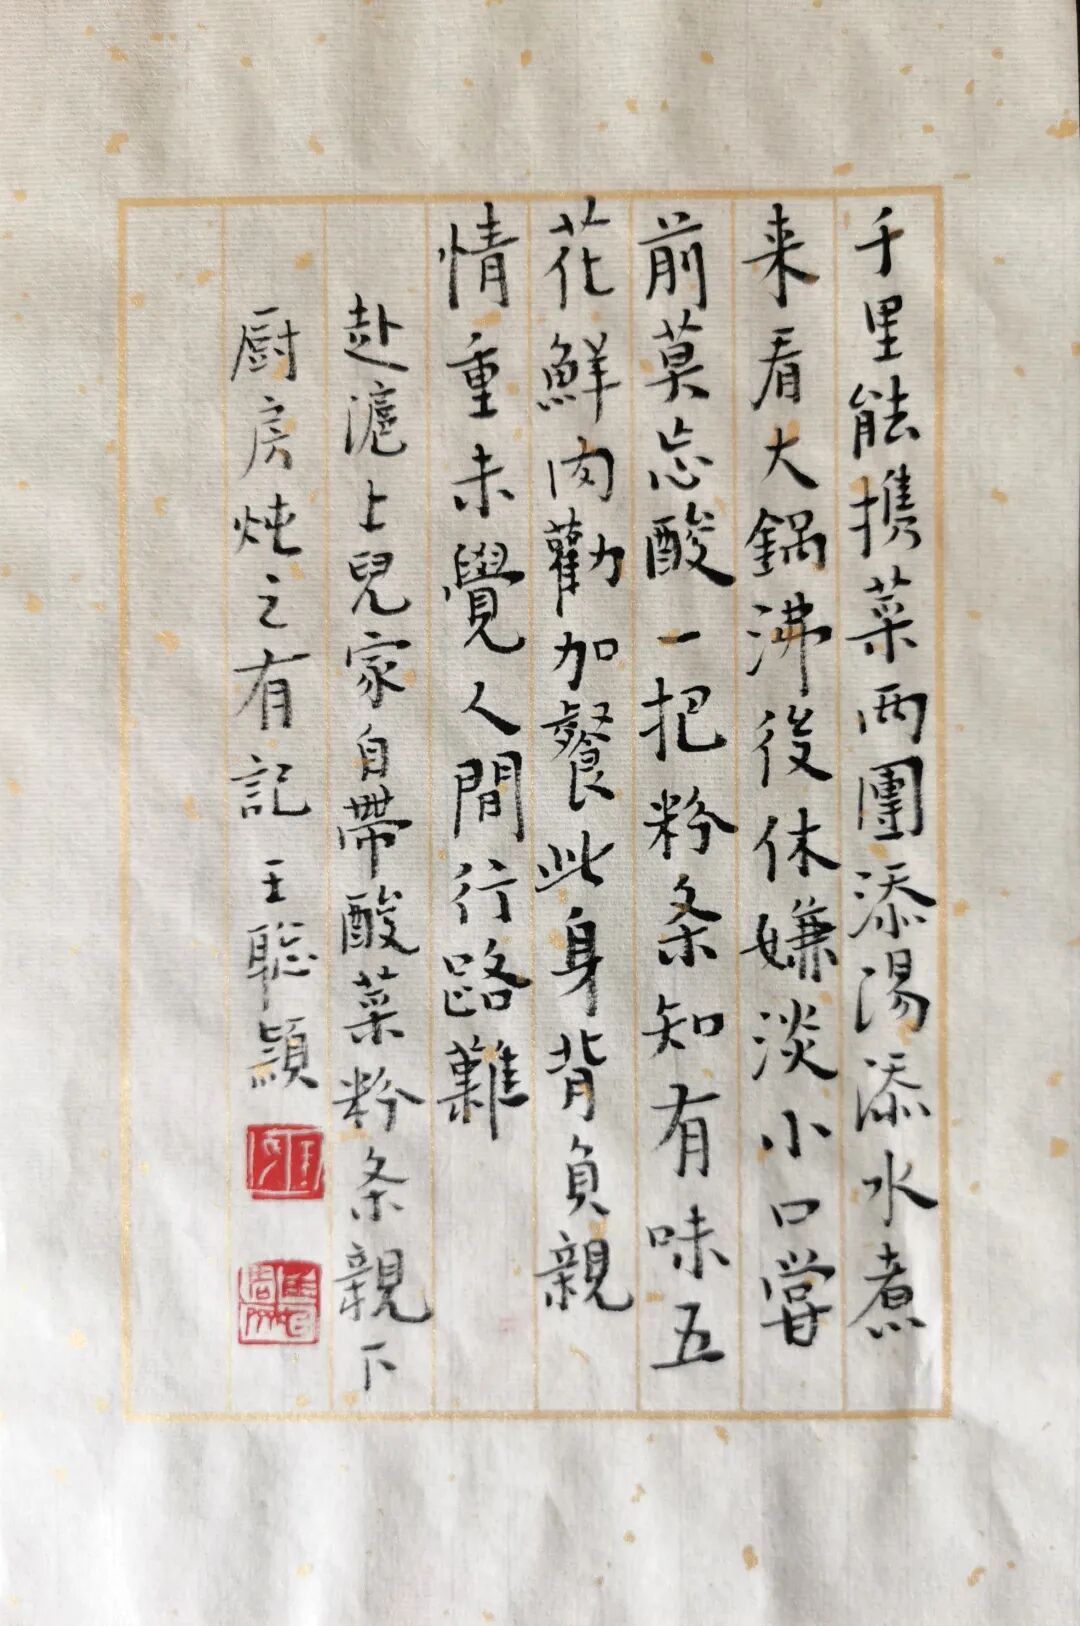 千里能携菜两團添湯添水煮
来看大鍋沸後休嫌淡小口嘗
前莫忘酸一把粉条知有味五
花鮮肉勸加餐此身背負親
情重未覺人間行路難
赴滬上兒家自帶酸菜粉条親下
厨房炖之有記 王聰穎